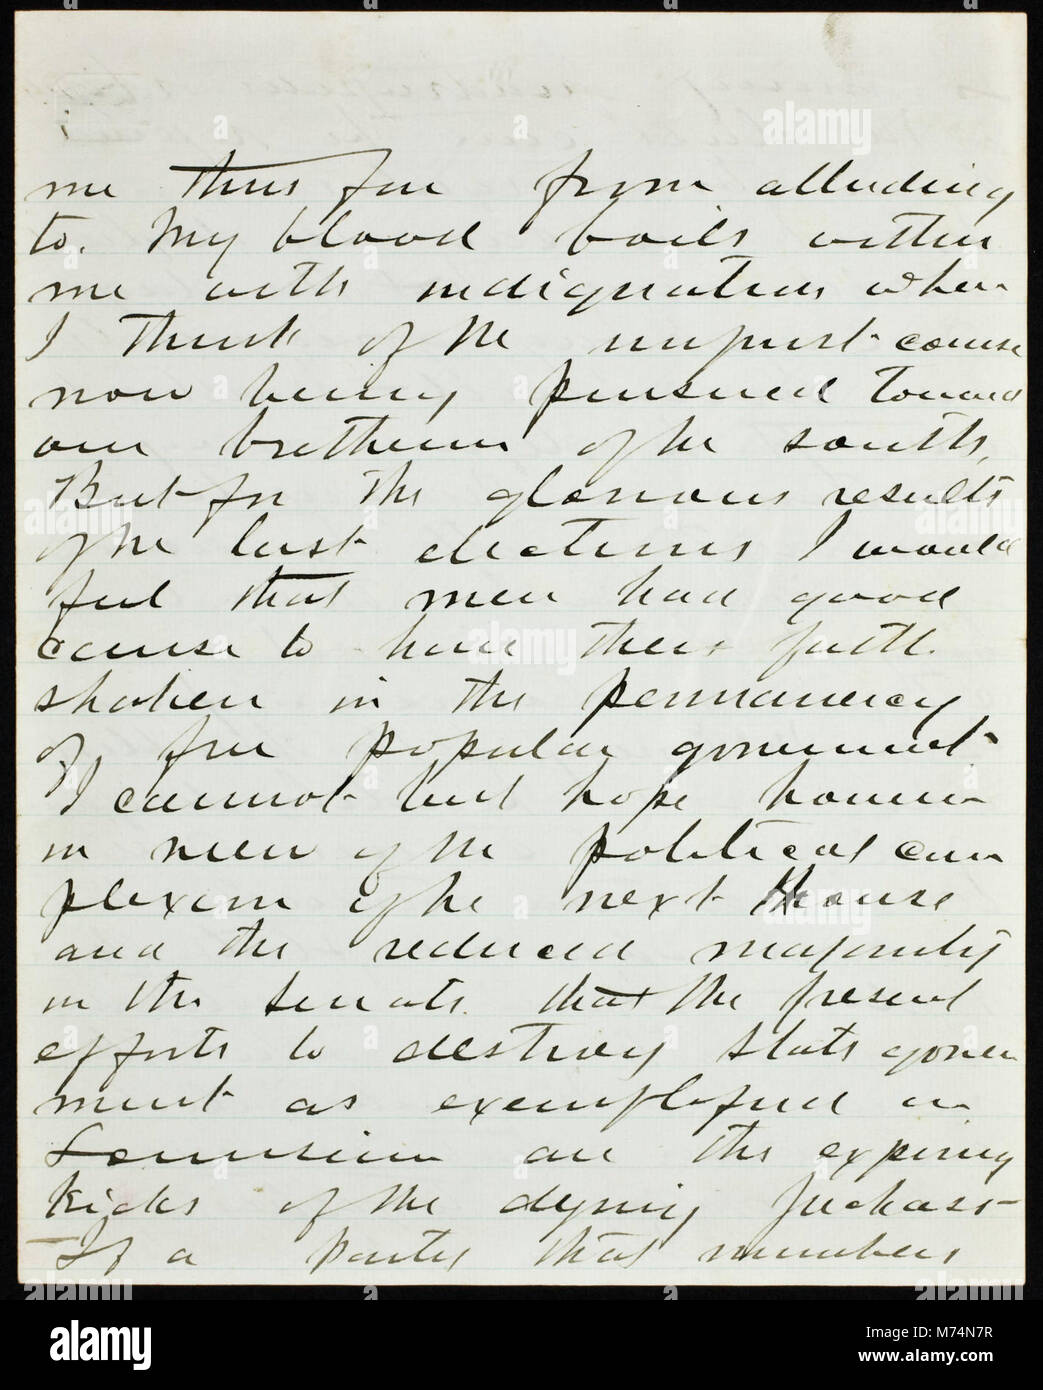 me thus far from alluding
to. My blood boils within
me with indignation when
I think of the unjust course
now being pursued toward
our brethren of the south,
But for the glorious results
of the last elections I would
feel that men had good
cause to have their faith
shaken in the permanency
of free popular government
I cannot but hope however
in view of the political com
plexion of the next House
and the reduced majority
in the Senate that the present
efforts to destroy State govern
ment as exemplified in
Louisiana are the expiring
kicks of the dying Jackass
If a party that numbers
alamy
Image ID: M74N7R
www.alamy.com